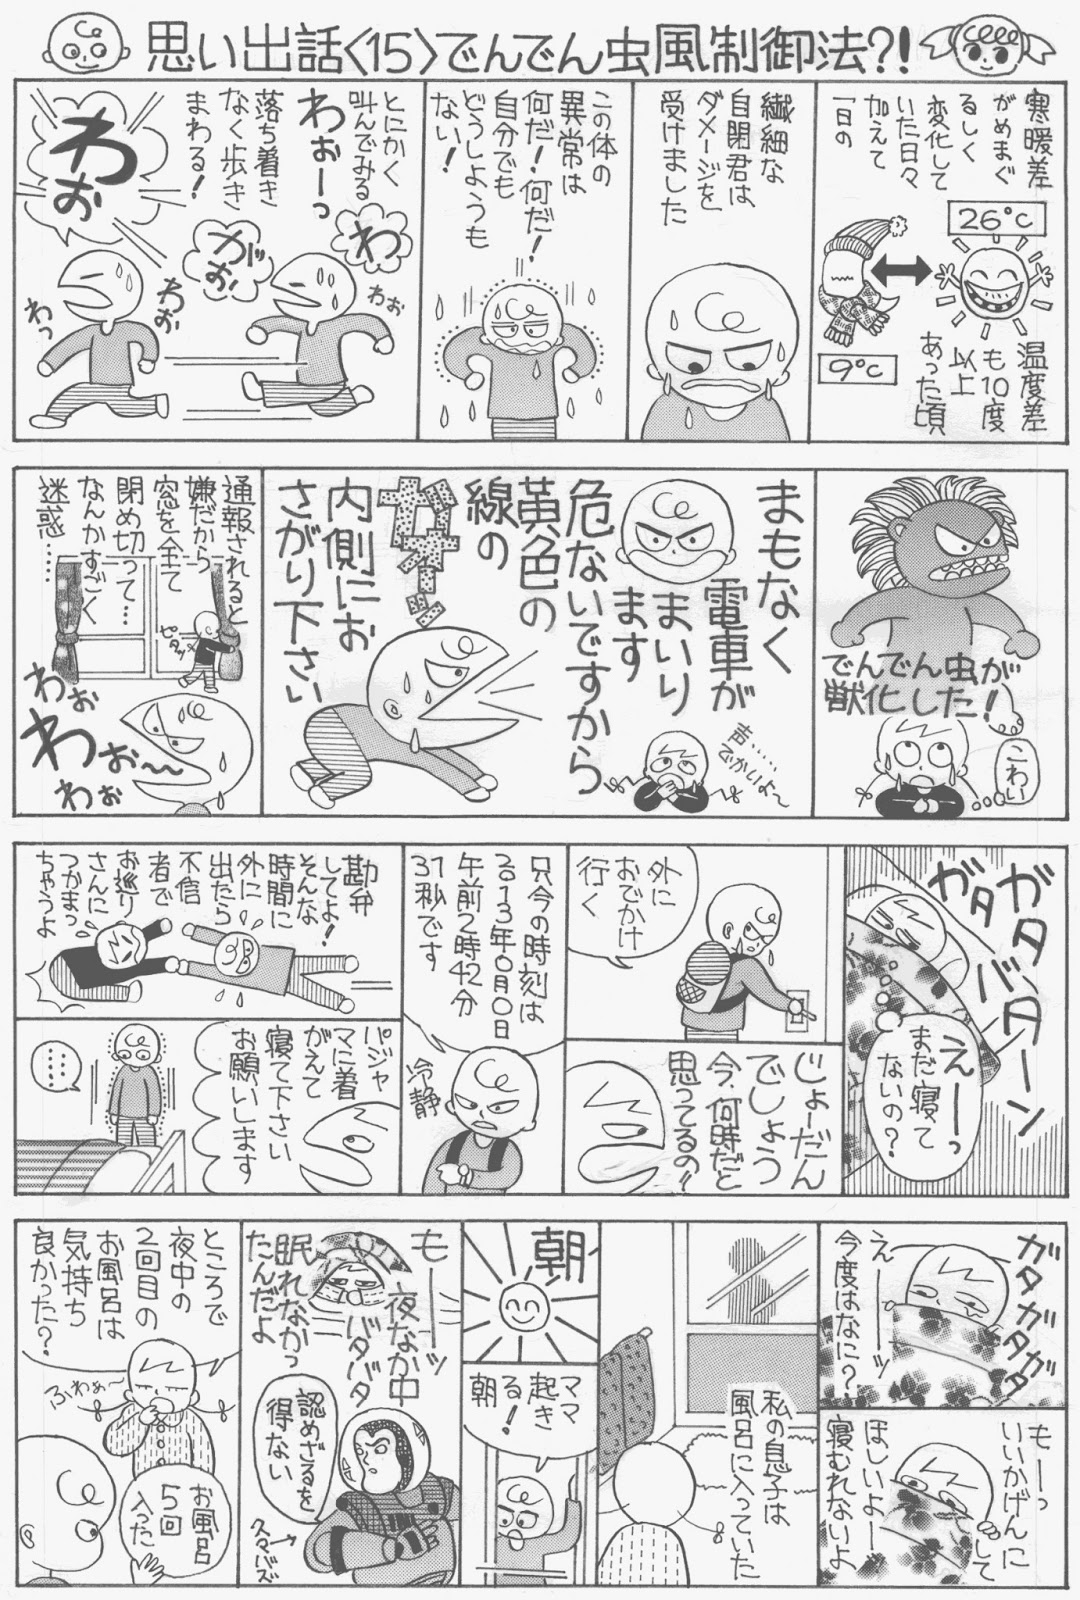 思い出話〈15〉でんでん虫風制御法?!
寒暖差
がめまぐ
るしく
変化して
いた日々
加えて
「1日の
26℃
9℃
温度差
も10度
以上
あった頃
繊細な
自閉君は
「ダメージを」
受けました
この体の
異常は
何だ!何だ!
自分でも
どうしようも
ない!
とにかく
叫んでみる
わぉーっ
落ち着き
なく歩き
まわる!
わ
わぉ
がぉ
わぉ
わぉ
わっ
でんでん虫が
獣化した!
こわい
まもなく
電車が
まいり
ます
危ないですから
黄色の
線の
内側にお
さがり下さい
声……
でかいよ〜
通報されると
嫌だから
窓を全て
閉め切って…
なんかすごく
迷惑……
ピタッ
わぉ
わぉ〜
わぉ
ガタ
ガタ
バターン
えーっ
まだ寝て
ないの?
外に
おでかけ
行く
じょーだん
でしょう
今、何時だと
思ってるの!!
只今の時刻は
2013年0月0日
午前2時42分
31秒です
冷静
勘弁
してよ!
そんな
時間に
外に
出たら
不信
者で
お巡り
さんに
つかまっ
ちゃうよ
パジャ
マに着
がえて
寝て下さい
お願いします
……
ガタガタガタ
えーーッ
今度はなに?
もーっ
いいかげんに
して
ほしいよー
寝むれないよ
私の息子は
風呂に入っていた
朝
ママ
起き
る!
朝
もーーッ
夜なか中
バタバタ
眠れなかっ
たんだよ
認めざるを
得ない
ところで
夜中の
2回目の
お風呂は
気持ち
良かった?
ふわぁ〜
お風呂
5回
入った